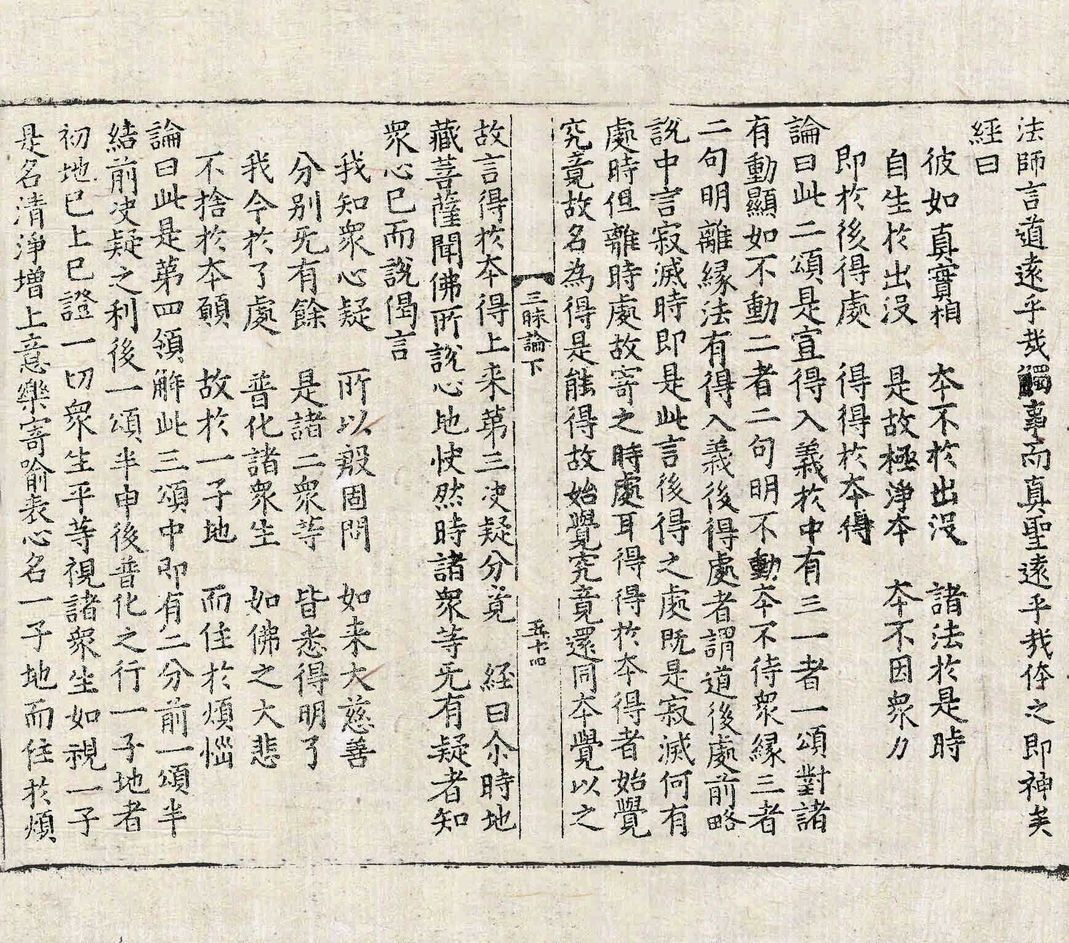 法師言道遠乎哉觸事而真聖遠乎哉体之即神矣
經曰
彼如真實相 本不於出没 諸法於是時
自生於出没 是故極淨本 本不因衆力
即於後得處 得得於本得
論曰此二頌是宣得入義於中有三一者一頌對諸
有動顯如不動二者二句明不動本不待衆緣三者
二句明離緣法有得入義後得處者謂道後處前略
說中言寂滅時即是此言後得之處既是寂滅何有
處時但離時處故寄之時處耳得得於本得者始覺
究竟故名為得是能得故始覺究竟還同本覺以之
三昧論下 五十四
故言得於本得上来第三决疑分竟 經曰尒時地
藏菩薩聞佛所說心地快然時諸衆等无有疑者知
衆心已而說偈言
我知衆心疑 所以殷固問 如来大慈善
分别无有餘 是諸二衆等 皆悉得明了
我今於了處 普化諸衆生 如佛之大悲
不捨於本願 故於一子地 而住於煩惱
論曰此是第四領解此三頌中即有二分前一頌半
結前决疑之利後一頌半申後普化之行一子地者
初地已上已證一切衆生平等視諸衆生如視一子
是名清淨增上意樂寄喻表心名一子地而住於煩